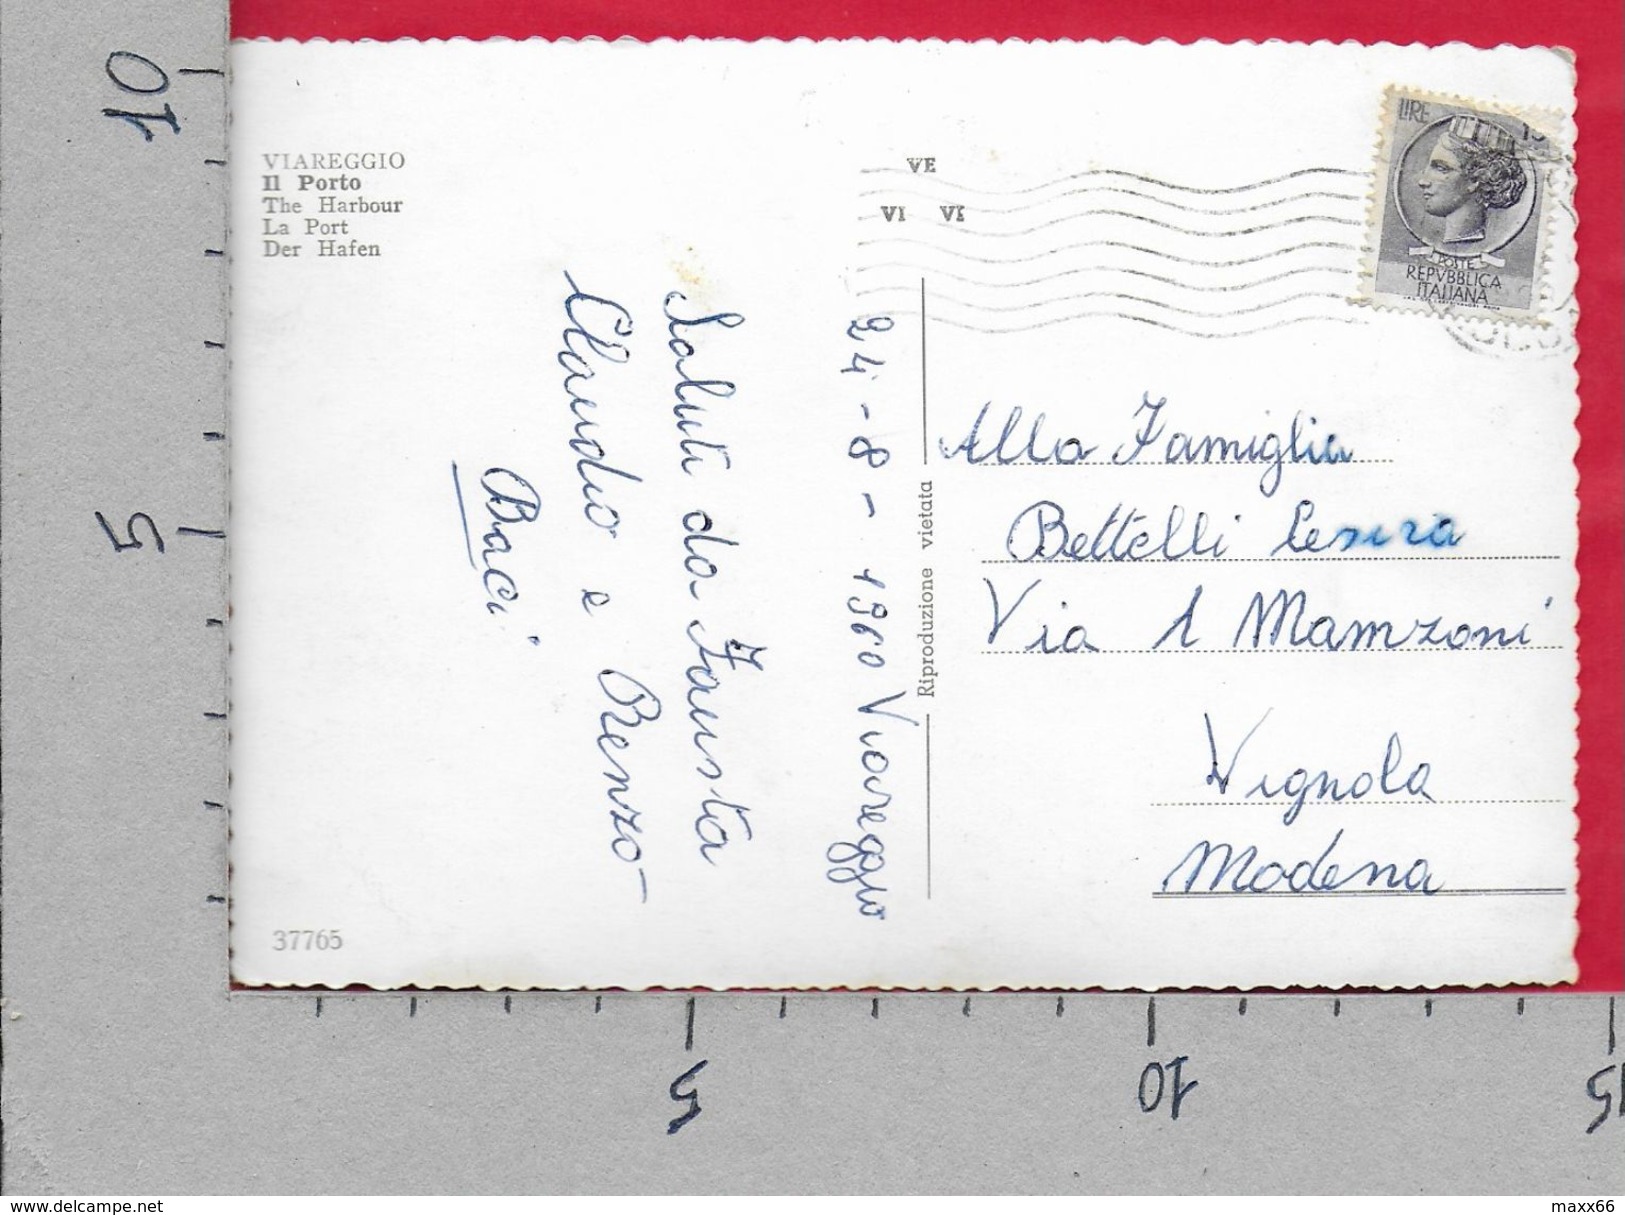 VIAREGGIO
Il Porto
The Harbour
La Port
Der Hafen
Saluti da Fausta
Claudio e Renzo -
Baci
24 - 8 - 1960 Viareggio
37765
Riproduzione vietata
VE
VI VI
LIRE 15
POSTE
REPVBBLICA
ITALIANA
Alla Famiglia
Bettelli Cesira
Via 1 Mamzoni
Vignola
Modena
10
5
5
10
15
delcampe.net
maxx66